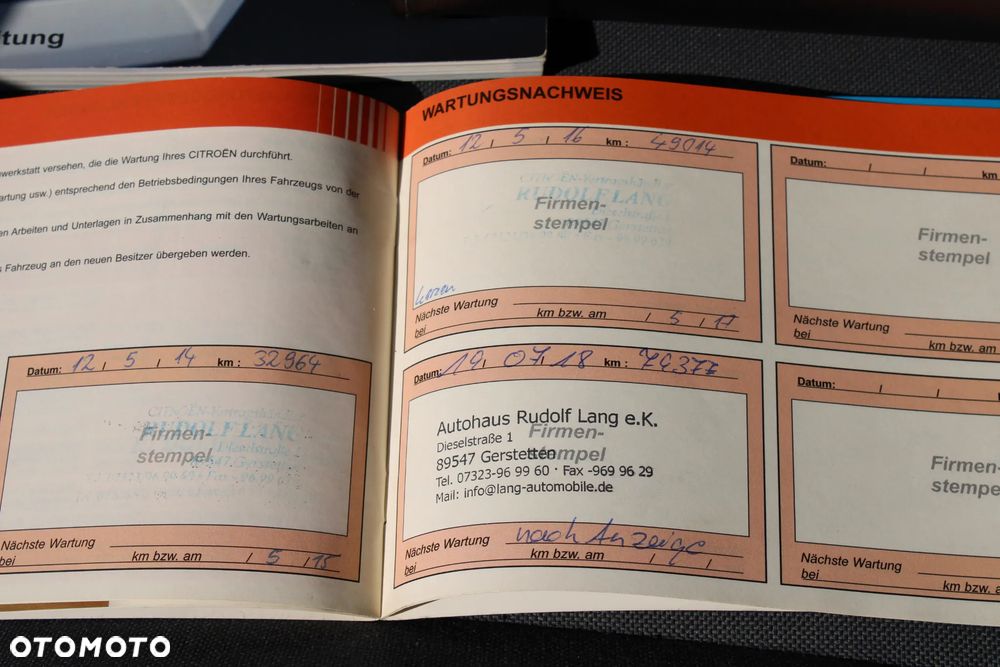 tung
werkstatt versehen, die die Wartung Ihres CITROËN durchführt.
artung usw.) entsprechend den Betriebsbedingungen Ihres Fahrzeugs von der
en Arbeiten und Unterlagen in Zusammenhang mit den Wartungsarbeiten an
s Fahrzeug an den neuen Besitzer übergeben werden.
Datum: 12 / 5 / 14 km : 32964
CITROËN-Vertragshändler
RUDOLF LANG
Firmen-
stempel
89547 Gerstetten
Nächste Wartung
bei km bzw. am / 5 / 15
WARTUNGSNACHWEIS
Datum: 12 / 5 / 16 km : 49014
CITROËN-Vertragshändler
RUDOLF LANG
Firmen-
stempel
Nächste Wartung
bei km bzw. am / 5 / 17
Datum: 19 / 07 / 18 km :
Autohaus Rudolf Lang e.K.
Dieselstraße 1
Firmen-
stempel
89547 Gerstetten
Tel. 07323-96 99 60 · Fax -969 96 29
Mail: info@lang-automobile.de
Nächste Wartung nach Anzeige
bei km bzw. am / /
Datum: / / km
Firmen-
stempel
Nächste Wartung
bei km bzw. a
Datum: / /
Firmen-
stempe
Nächste Wartung
bei km bzw. a
OTOMOTO